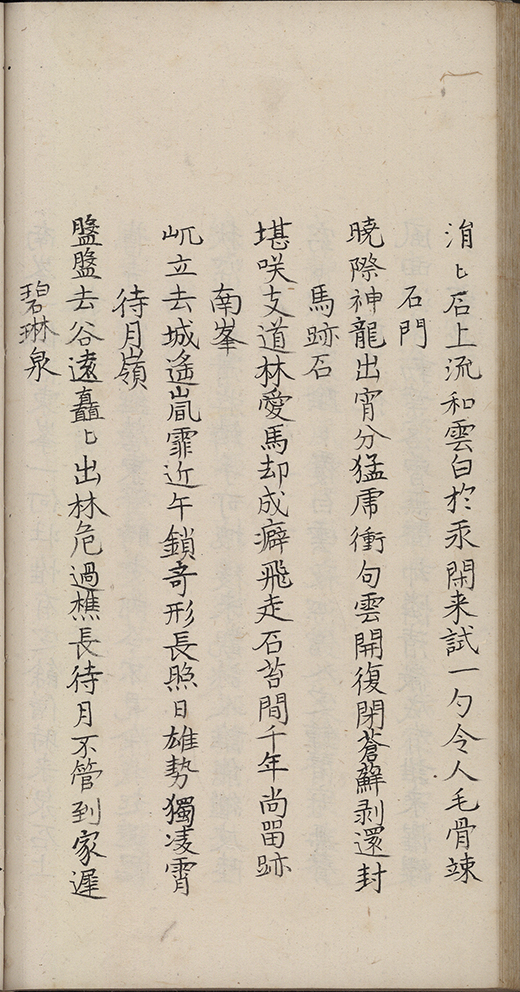 涓〻石上流和雲白於汞閑来試一勺令人毛骨竦
石門
曉際神龍出宵分猛虎衝句雲開復閉蒼蘚剥還封
馬跡石
堪咲支道林愛馬却成癖飛走石苔間千年尚畱跡
南峯
屼立去城遙嵐霏近午鎖竒形長照日雄勢獨凌霄
待月嶺
盤盤去谷遠矗〻出林危過樵長待月不管到家遲
碧琳泉